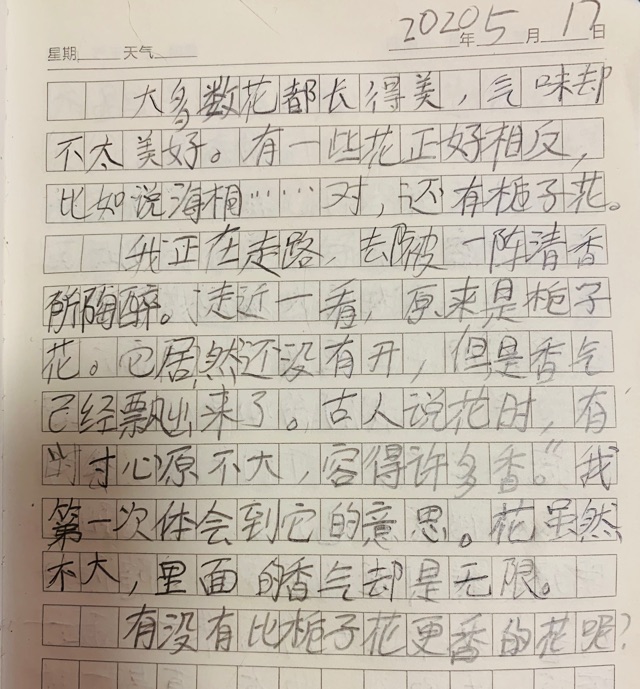 2020年5月17日
星期 天气
大多数花都长得美，气味却
不太美好。有一些花正好相反，
比如说海桐……对，还有栀子花。
我正在走路，却被一阵清香
所陶醉。走近一看，原来是栀子
花。它居然还没有开，但是香气
已经飘出来了。古人说花时，有
“时寸心原不大，容得许多香。”我
第一次体会到它的意思。花虽然
不大，里面的香气却是无限。
有没有比栀子花更香的花呢？